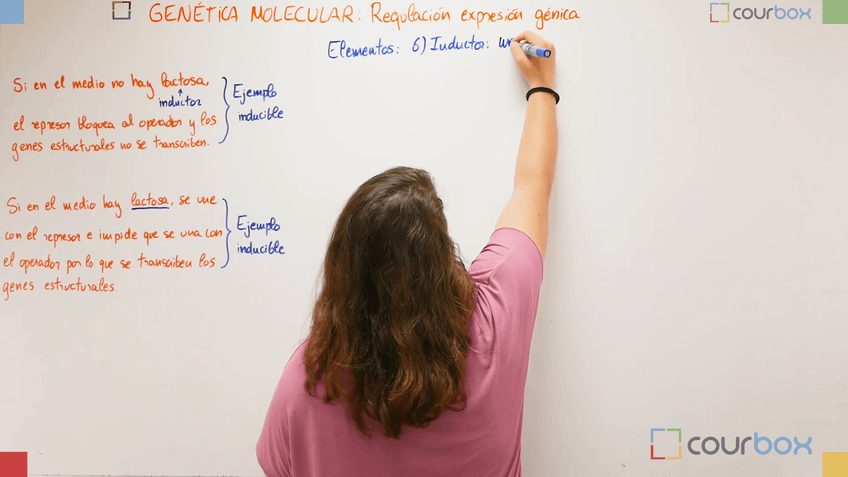 GENÉTICA MOLECULAR: Regulación expresión génica
courbox
Elementos: 6) Inductor:
Si en el medio no hay lactosa,
inductor
el represor bloquea al operador y los
genes estructurales no se transcriben.
Ejemplo
inducible
Si en el medio hay lactosa, se une
con el represor e impide que se una con
el operador por lo que se transcriben los
genes estructurales.
Ejemplo
inducible
courbox